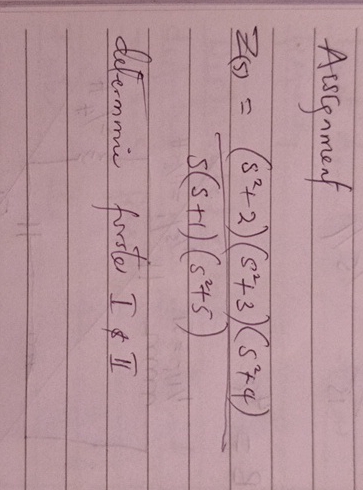 Assignment
Z(s) = (s²+2)(s²+3)(s²+4)
s(s+1)(s²+5)
determine foster I & II